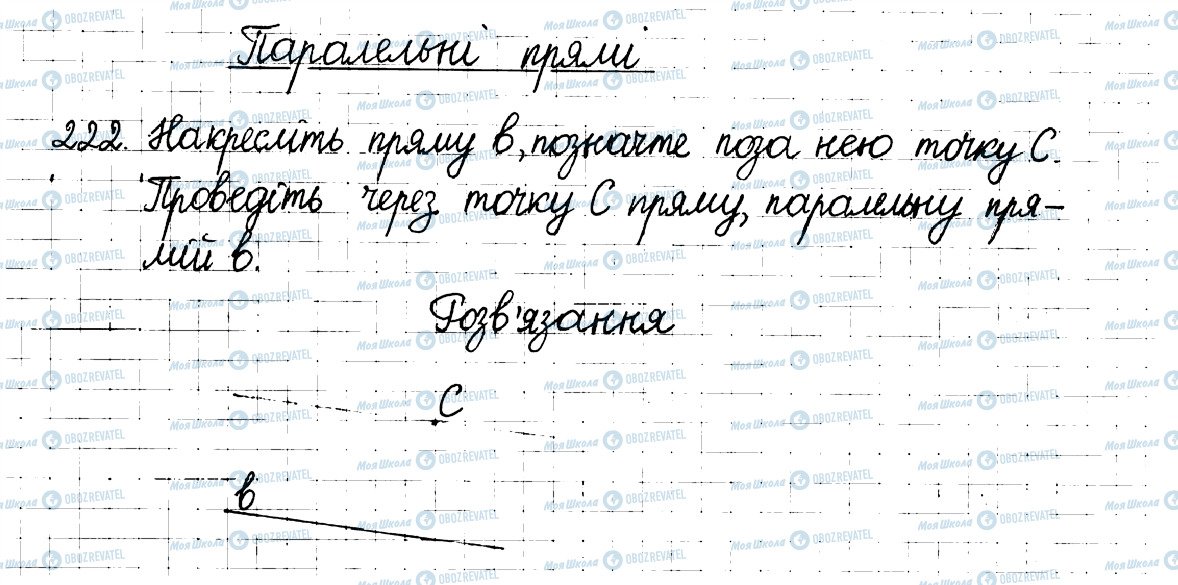 Паралельні прямі
222. Накресліть пряму в, позначте поза нею точку С.
Проведіть через точку С пряму, паралельну пря-
мій в.
Розв'язання
С
в